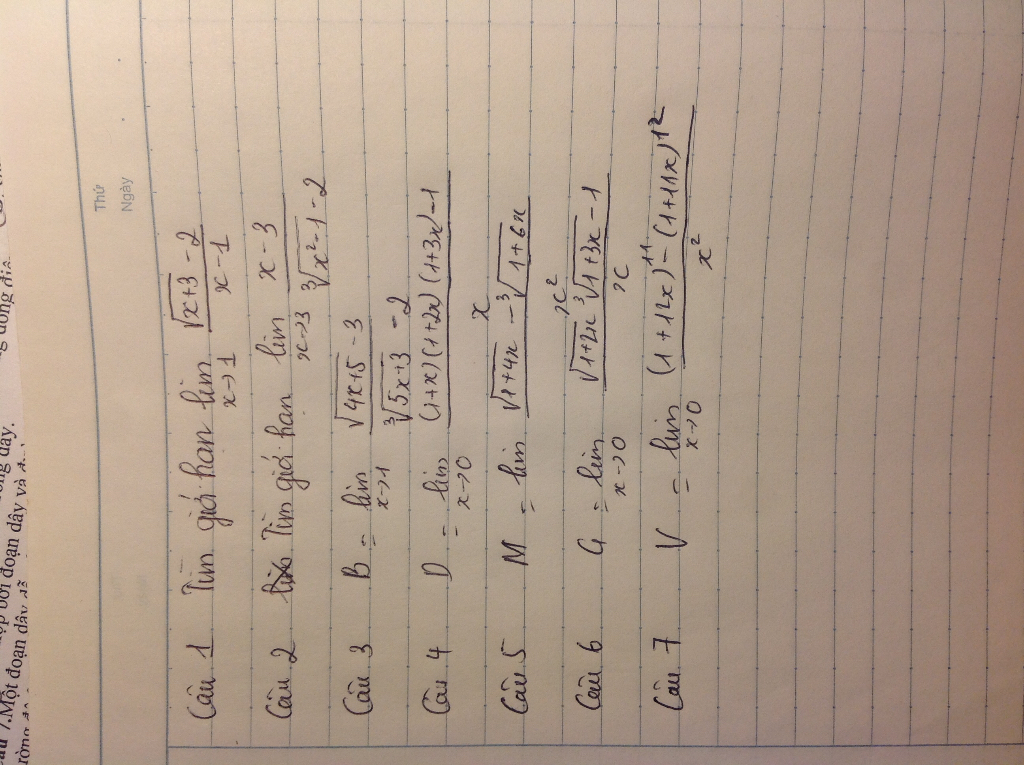 Thứ
Ngày
Câu 1 Tìm giới hạn lim x→1 (√(x+3) - 2)/(x - 1)
Câu 2 Tìm giới hạn lim x→3 (x - 3)/(∛(x² - 1) - 2)
Câu 3 B = lim x→1 (√(4x+5) - 3)/(∛(5x+3) - 2)
Câu 4 D = lim x→0 ((1+x)(1+2x)(1+3x) - 1)/x
Câu 5 M = lim (√(1+4x) - ∛(1+6x))/x²
Câu 6 G = lim x→0 (√(1+2x) ∛(1+3x) - 1)/x
Câu 7 V = lim x→0 ((1+12x)¹¹ - (1+11x)¹²)/x²